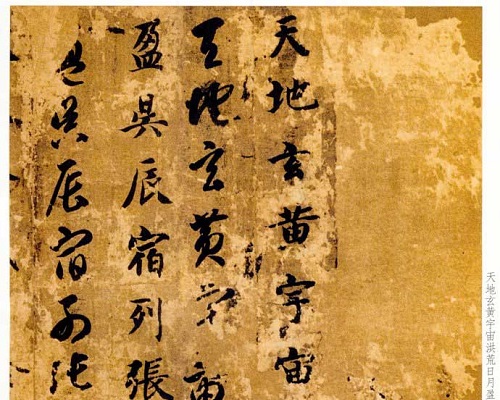 天地玄黃宇宙
天地玄黃宇宙
盈昃辰宿列張
盈昃辰宿列張
天地玄黃宇宙洪荒日月盈